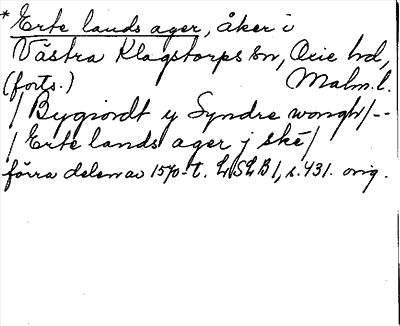 *Erte lands ager, åker i
Västra Klagstorps sn, Oxie hd,
(forts.) Malm.l.
/ Bygiordt y Syndre wongh/--
/ Erte lands ager j ske/
förra delen av 1570-t. LSLB 1, s. 431. orig.